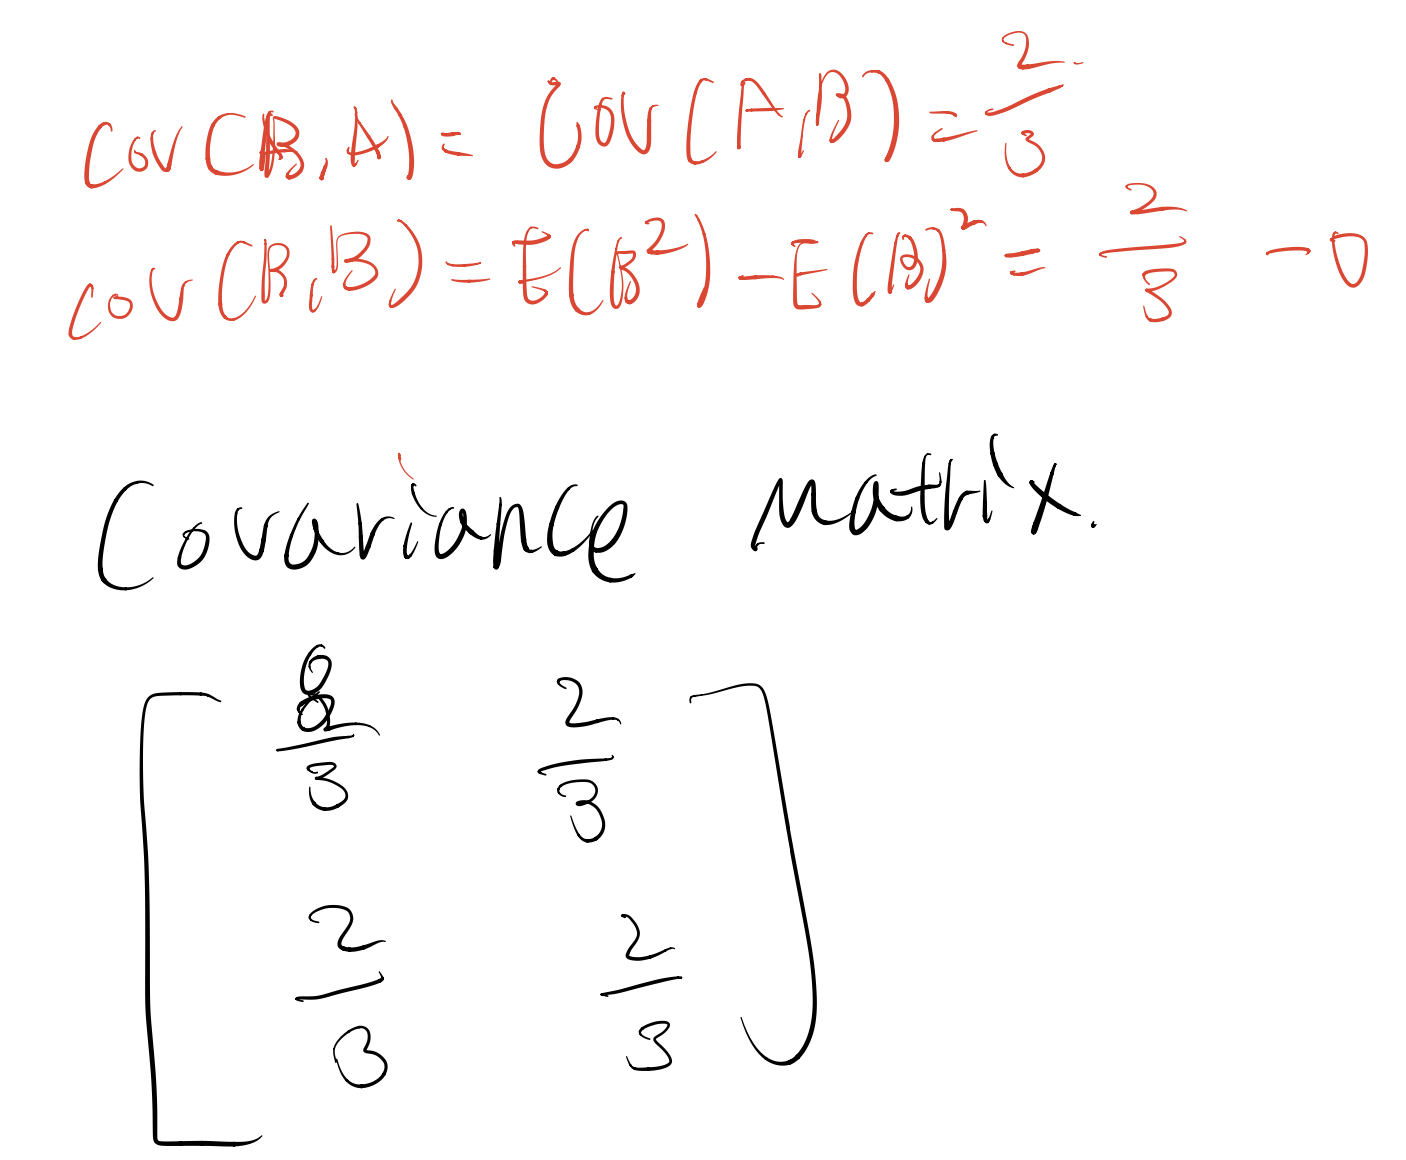 COV(B,A) = COV(A,B) = 2/3
COV(B,B) = E(B²) - E(B)² = 2/3 - 0
Covariance Matrix.
[ 8/3 2/3
2/3 2/3 ]